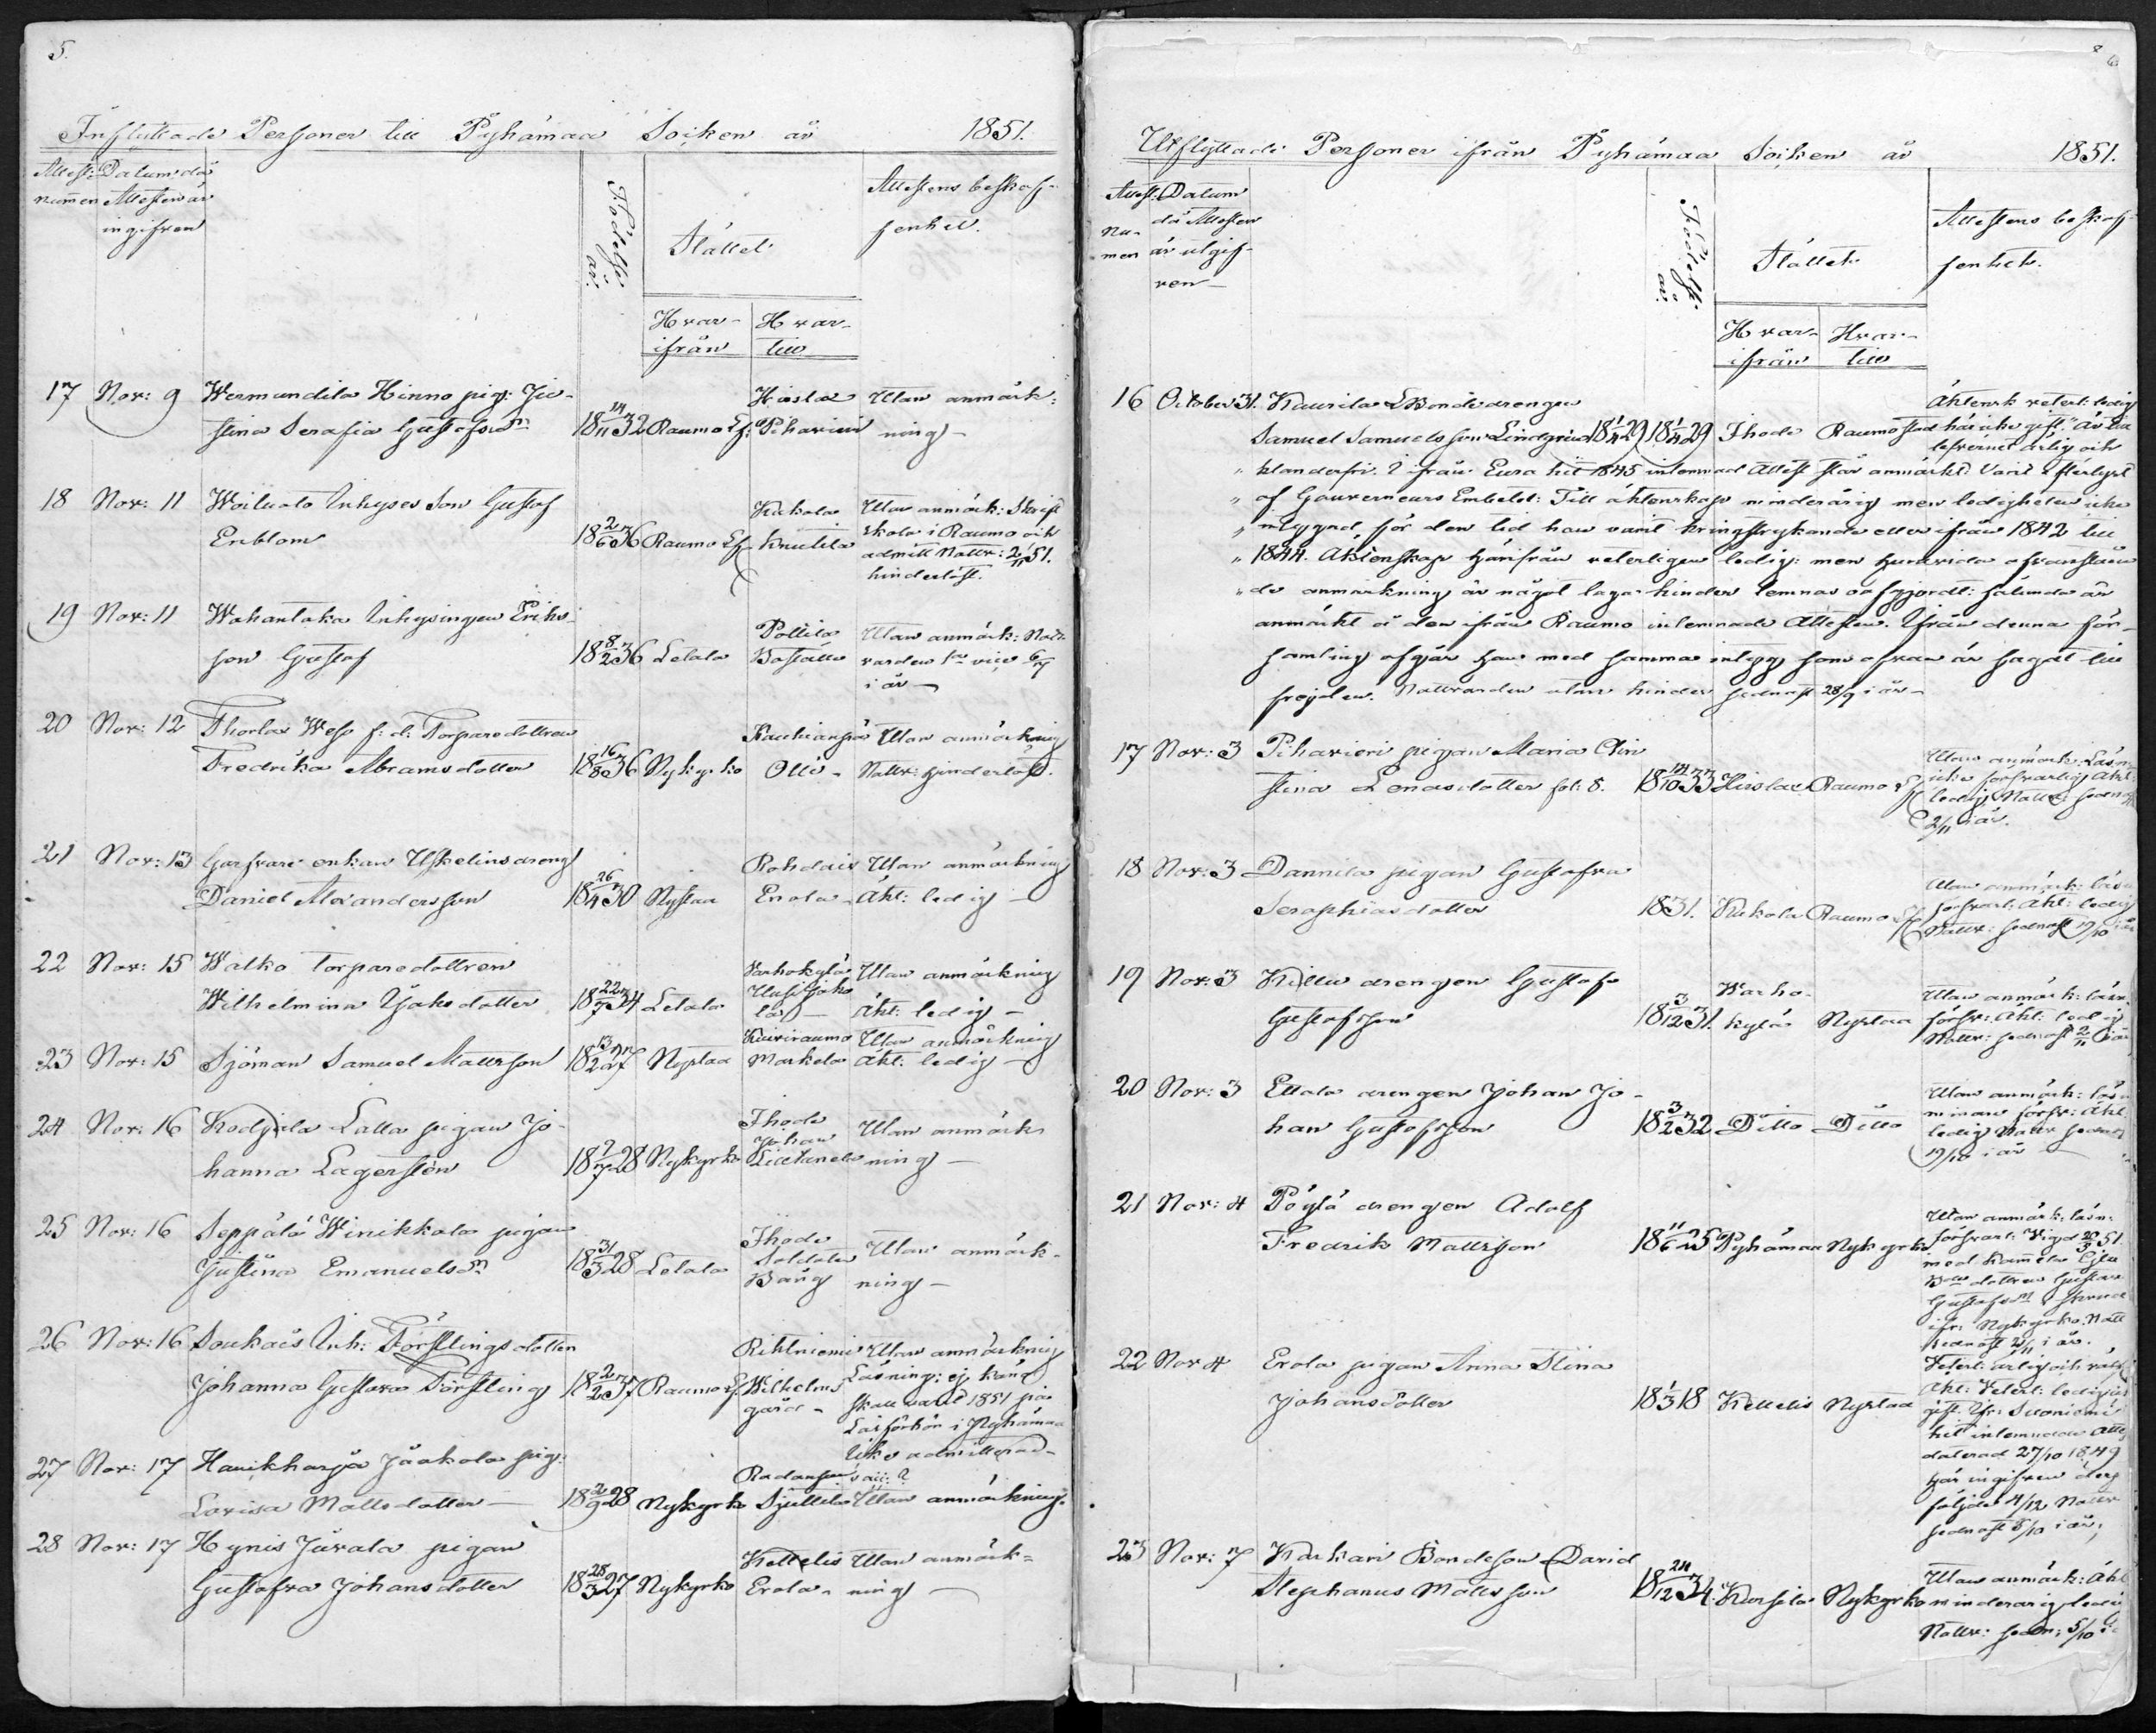 5.
Inflyttade Personer till Pyhämaa Socken år 1851.
Attest: Datum då
numern Attesten är
ingifven
Födelse
år.
Stället
Attestens beskaf-
fenhet.
Hvar-ifrån
Hvar-till
17 Nov: 9 Wermundila Hinno pig: Ju-
stina Serafia Gustafsdr 18 14/11 32 Raumo Lf: Hirslax Piharieri Utan anmärk:
ning
18 Nov: 11 Inhyses Son Gustaf
Enblom 18 2/6 36 Raumo Lf Kukola Knutila Utan anmärk: Skrift
skola i Raumo och
admitt Nattv: 2/11 51.
hinderlöst.
19 Nov: 11 Inhysingen Eriks-
son Gustaf 18 8/2 36 Letala Pollila Bostalle Utan anmärk: Natt-
varden
i år
20 Nov: 12 Thorla Wess f. d. Torparedottren
Fredrika Abramsdotter 18 16/8 36 Nykyrko Kauhianpä Olli Utan anmärkning
Nattv: hinderlöst.
21 Nov: 13 Garfvare enkan Uskelins dreng
Daniel Alexandersson 18 26/4 30 Nystad Rohdais Erola Utan anmärkning
Äkt: ledig
22 Nov: 15 Walko Torparedottren
Wilhelmina Jaksdotter 18 22/7 34 Letala Varhokylä Uusijako Utan anmärkning
Äkt: ledig
23 Nov: 15 Sjöman Samuel Mattsson 18 13/2 27 Nystad Kuiviraumo Markola Utan anmärkning
Äkt: ledig
24 Nov: 16 Kodjala Lalla pigan Jo-
hanna Lagerstén 18 7/7 28 Nykyrko Ihode Johan Utan anmärk
ning
25 Nov: 16 Seppälä Winikkala pigan
Justina Emanuelsdr 18 31/3 28 Letala Ihode Soldaten Bång Utan anmärk-
ning
26 Nov: 16 Soukais Inh: Förstlings dotter
Johanna Gustava Förstling 18 2/2 37 Raumo Lf Rihtniemi Wilhelms gård Utan anmärkning
Läsning: ej känd
skall varit 1851 på
Läsförhör i Pyhämaa
Icke admitterad
27 Nov: 17 Haukharja Jaakola pig:
Lovisa Mattsdotter 18 2/9 28 Nykyrko Sjullila Utan anmärkning
28 Nov: 17 Hynis Juvala pigan
Gustafva Johansdotter 18 28/3 27 Nykyrko Kettelis Erola Utan anmärk=
ning
6
Utflyttade Personer ifrån Pyhämaa Socken år 1851.
Attest: Datum
Nu- då Attesten
men är utgif-
ven
Födelse
år.
Stället
Attestens beskaf-
fenhet.
Hvar-ifrån
Hvar-till
16 October 31. Kaurila Bondedrengen
Samuel Samuelsson Lindgren 18 1/4 29 18 1/4 29 Ihode Raumo stad Äktensk veterl: ledig
här icke gift. Är till
lefvernet ärlig och
" klanderfri. I ifrån Eura hit 1845 inlemnad Attest står anmärkt: Varit efterlyst
" af Gouverneurs Embetet: Till äktenskap minderårig men ledigheten icke
" styrgad för den tid han varit kringstrykande eller ifrån 1842 till
" 1844. Äktenskap härifrån veterligen ledig: men huruvida ofvanståen
" de anmärkning är något laga hinder lemnas oafgjordt: sålunda är
anmärkt å den ifrån Raumo inlemnade Attesten. Ifrån denna för-
samling afgår han med samma intyg som ofvan är sagdt till
frejden. Nattvarden utan hinder sednast 28/9 i år
17 Nov: 3 Piharieri pigan Maria Chri
stina Lenasdotter fol: 8. 18 14/10 33 Hirslax Raumo Lf Utan anmärk: Läsn
icke försvarlig Äkt:
ledig Nattv: sednast
2/11 i år.
18 Nov: 3 Dannila pigan Gustafva
Seraphiasdotter 1831. Kukola Raumo Lf Utan anmärk: läsn
försvarl: Äkt: ledig
Nattv: sednast 19/10 i år
19 Nov: 3 drengen Gustaf
Gustafsson 18 3/12 31. Warho-kylä Nystad Utan anmärk: läsn:
försv: Äkt: ledig
Nattv: sednast 2/11 i år
20 Nov: 3 Ettala drengen Johan Jo-
han Gustafsson 18 3/2 32 Ditto Ditto Utan anmärk: läsn
innan försv: Äkt
ledig Nattv sednast
19/10 i år
21 Nov: 4 Pöylä drengen Adolf
Fredrik Mattsson 18 11/6 25 Pyhämaa Nykyrko Utan anmärk: läsn:
försvarl: Vigd 51
med Kammela
dottren Gustava
Gustafsdr
ifr: Nykyrko. Natt
sednast 2/11 i år.
22 Nov 4 Erola pigan Anna Stina
Johansdotter 18 1/3 18 Kettelis Nystad Veterl: ärlig och
Äkt: Veterl: ledig icke
gift. Ifr: Suoniemi
hit inlemnade Attest
daterad 27/10 1849
här ingifven
följde 4/12 Nattv
sednast 5/10 i år,
23 Nov: 7 Karkari Bondeson David
Stephanus Matsson 18 24/12 34. Korsila Nykyrko Utan anmärk: Äkt
minderårig ledig
Nattv: sedn: 5/10